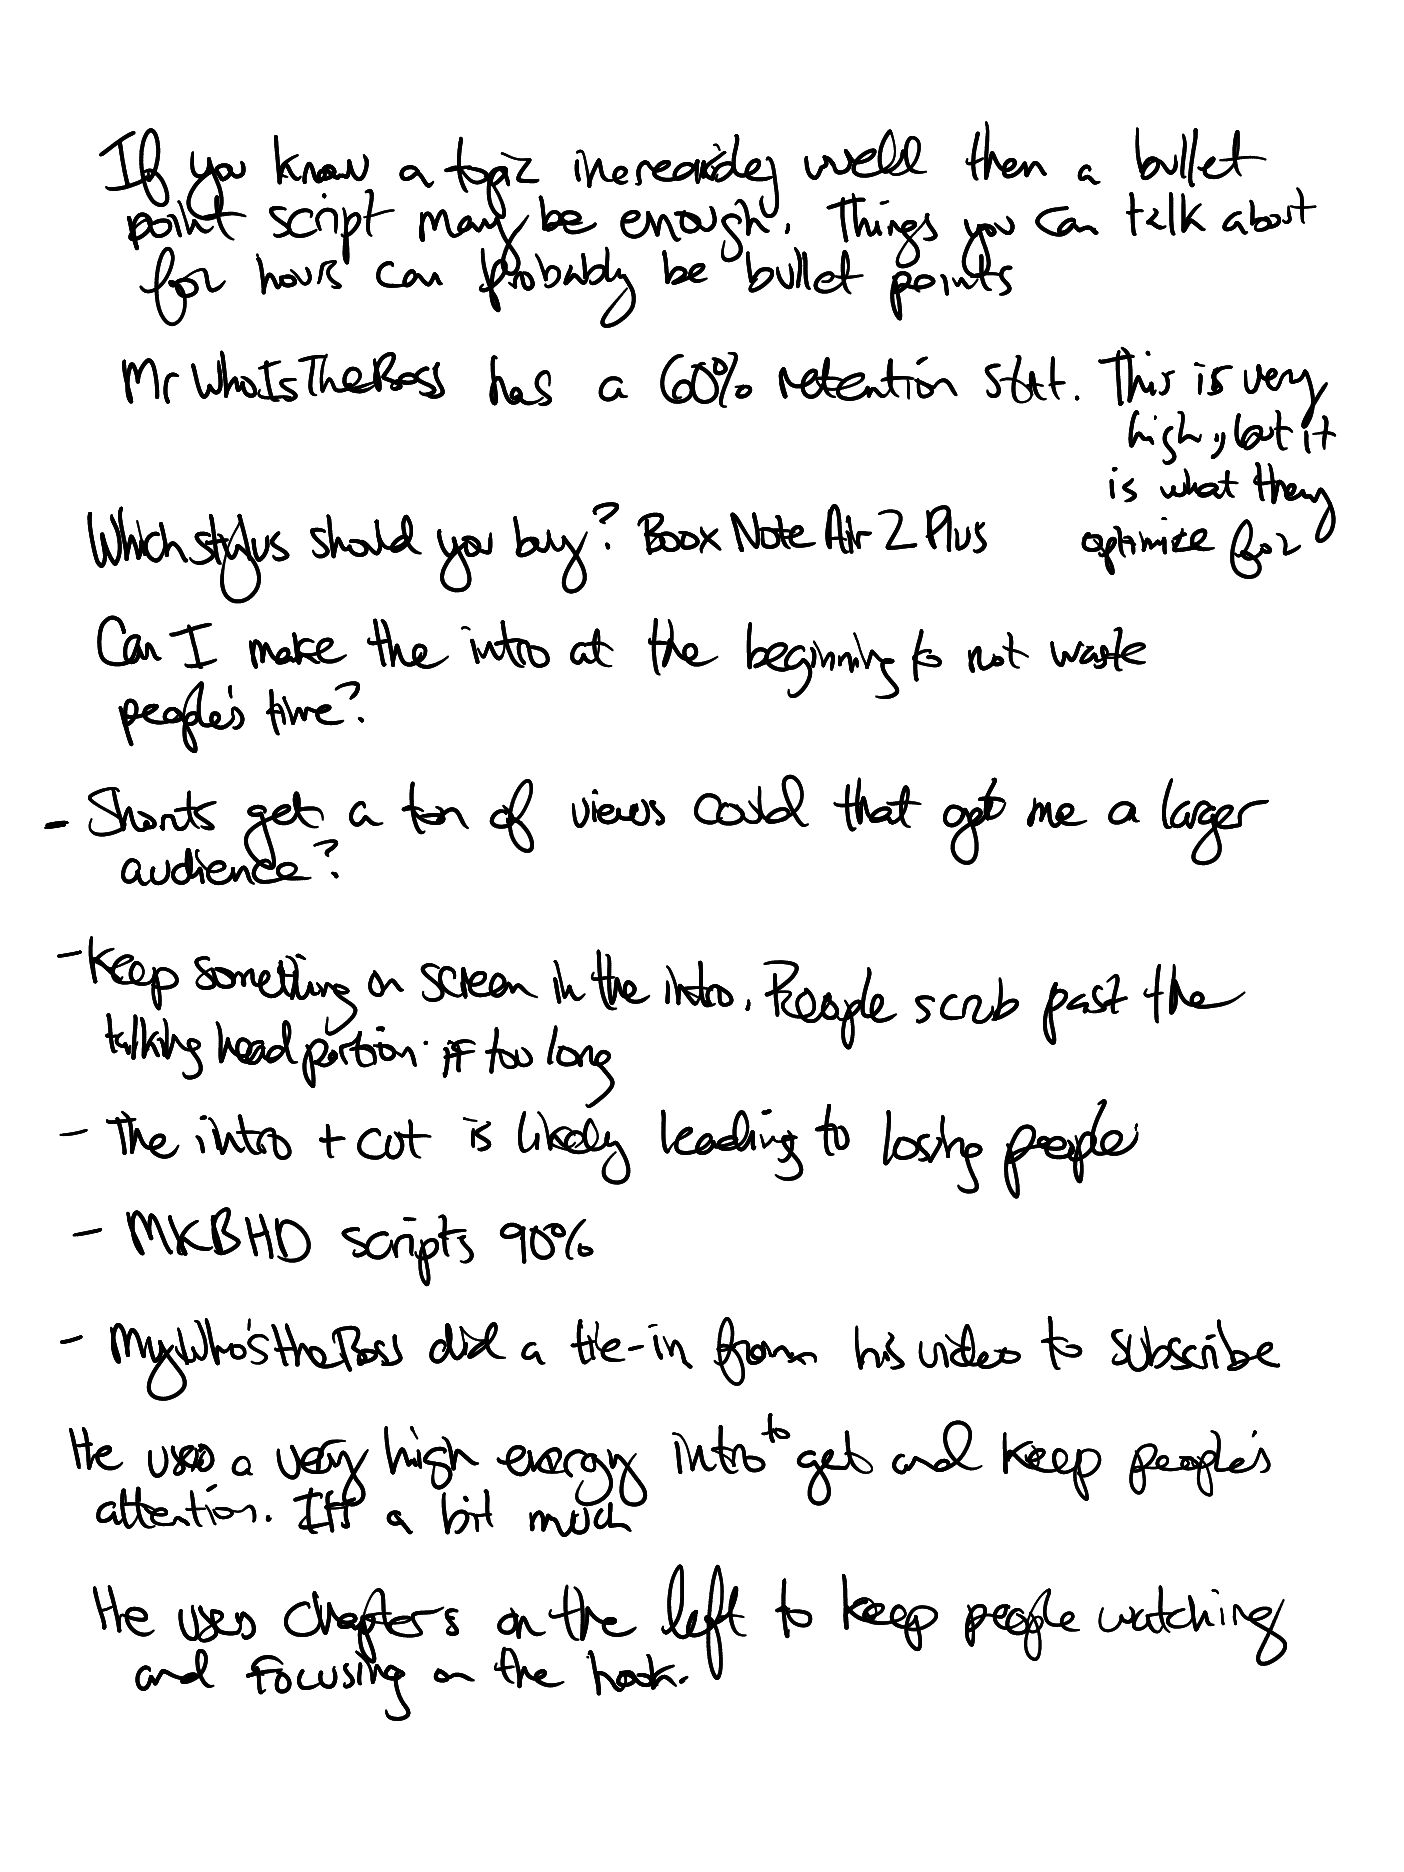 If you know a topic incredibly well then a bullet
point script may be enough. Things you can talk about
for hours can probably be bullet points
MrWhoIsTheBoss has a 60% retention stat. This is very
high, but it
is what they
optimize for
Which stylus should you buy? Boox Note Air 2 Plus
Can I make the intro at the beginning to not waste
people's time?
- Shorts get a ton of views could that get me a larger
audience?
- Keep something on screen in the intro. People scrub past the
talking head portion if too long
- The intro + cut is likely leading to losing people
- MKBHD scripts 90%
- MyWho'stheBoss did a tie-in from his video to subscribe
He uses a very high energy intro to get and keep people's
attention. It's a bit much
He uses chapters on the left to keep people watching
and focusing on the hook.